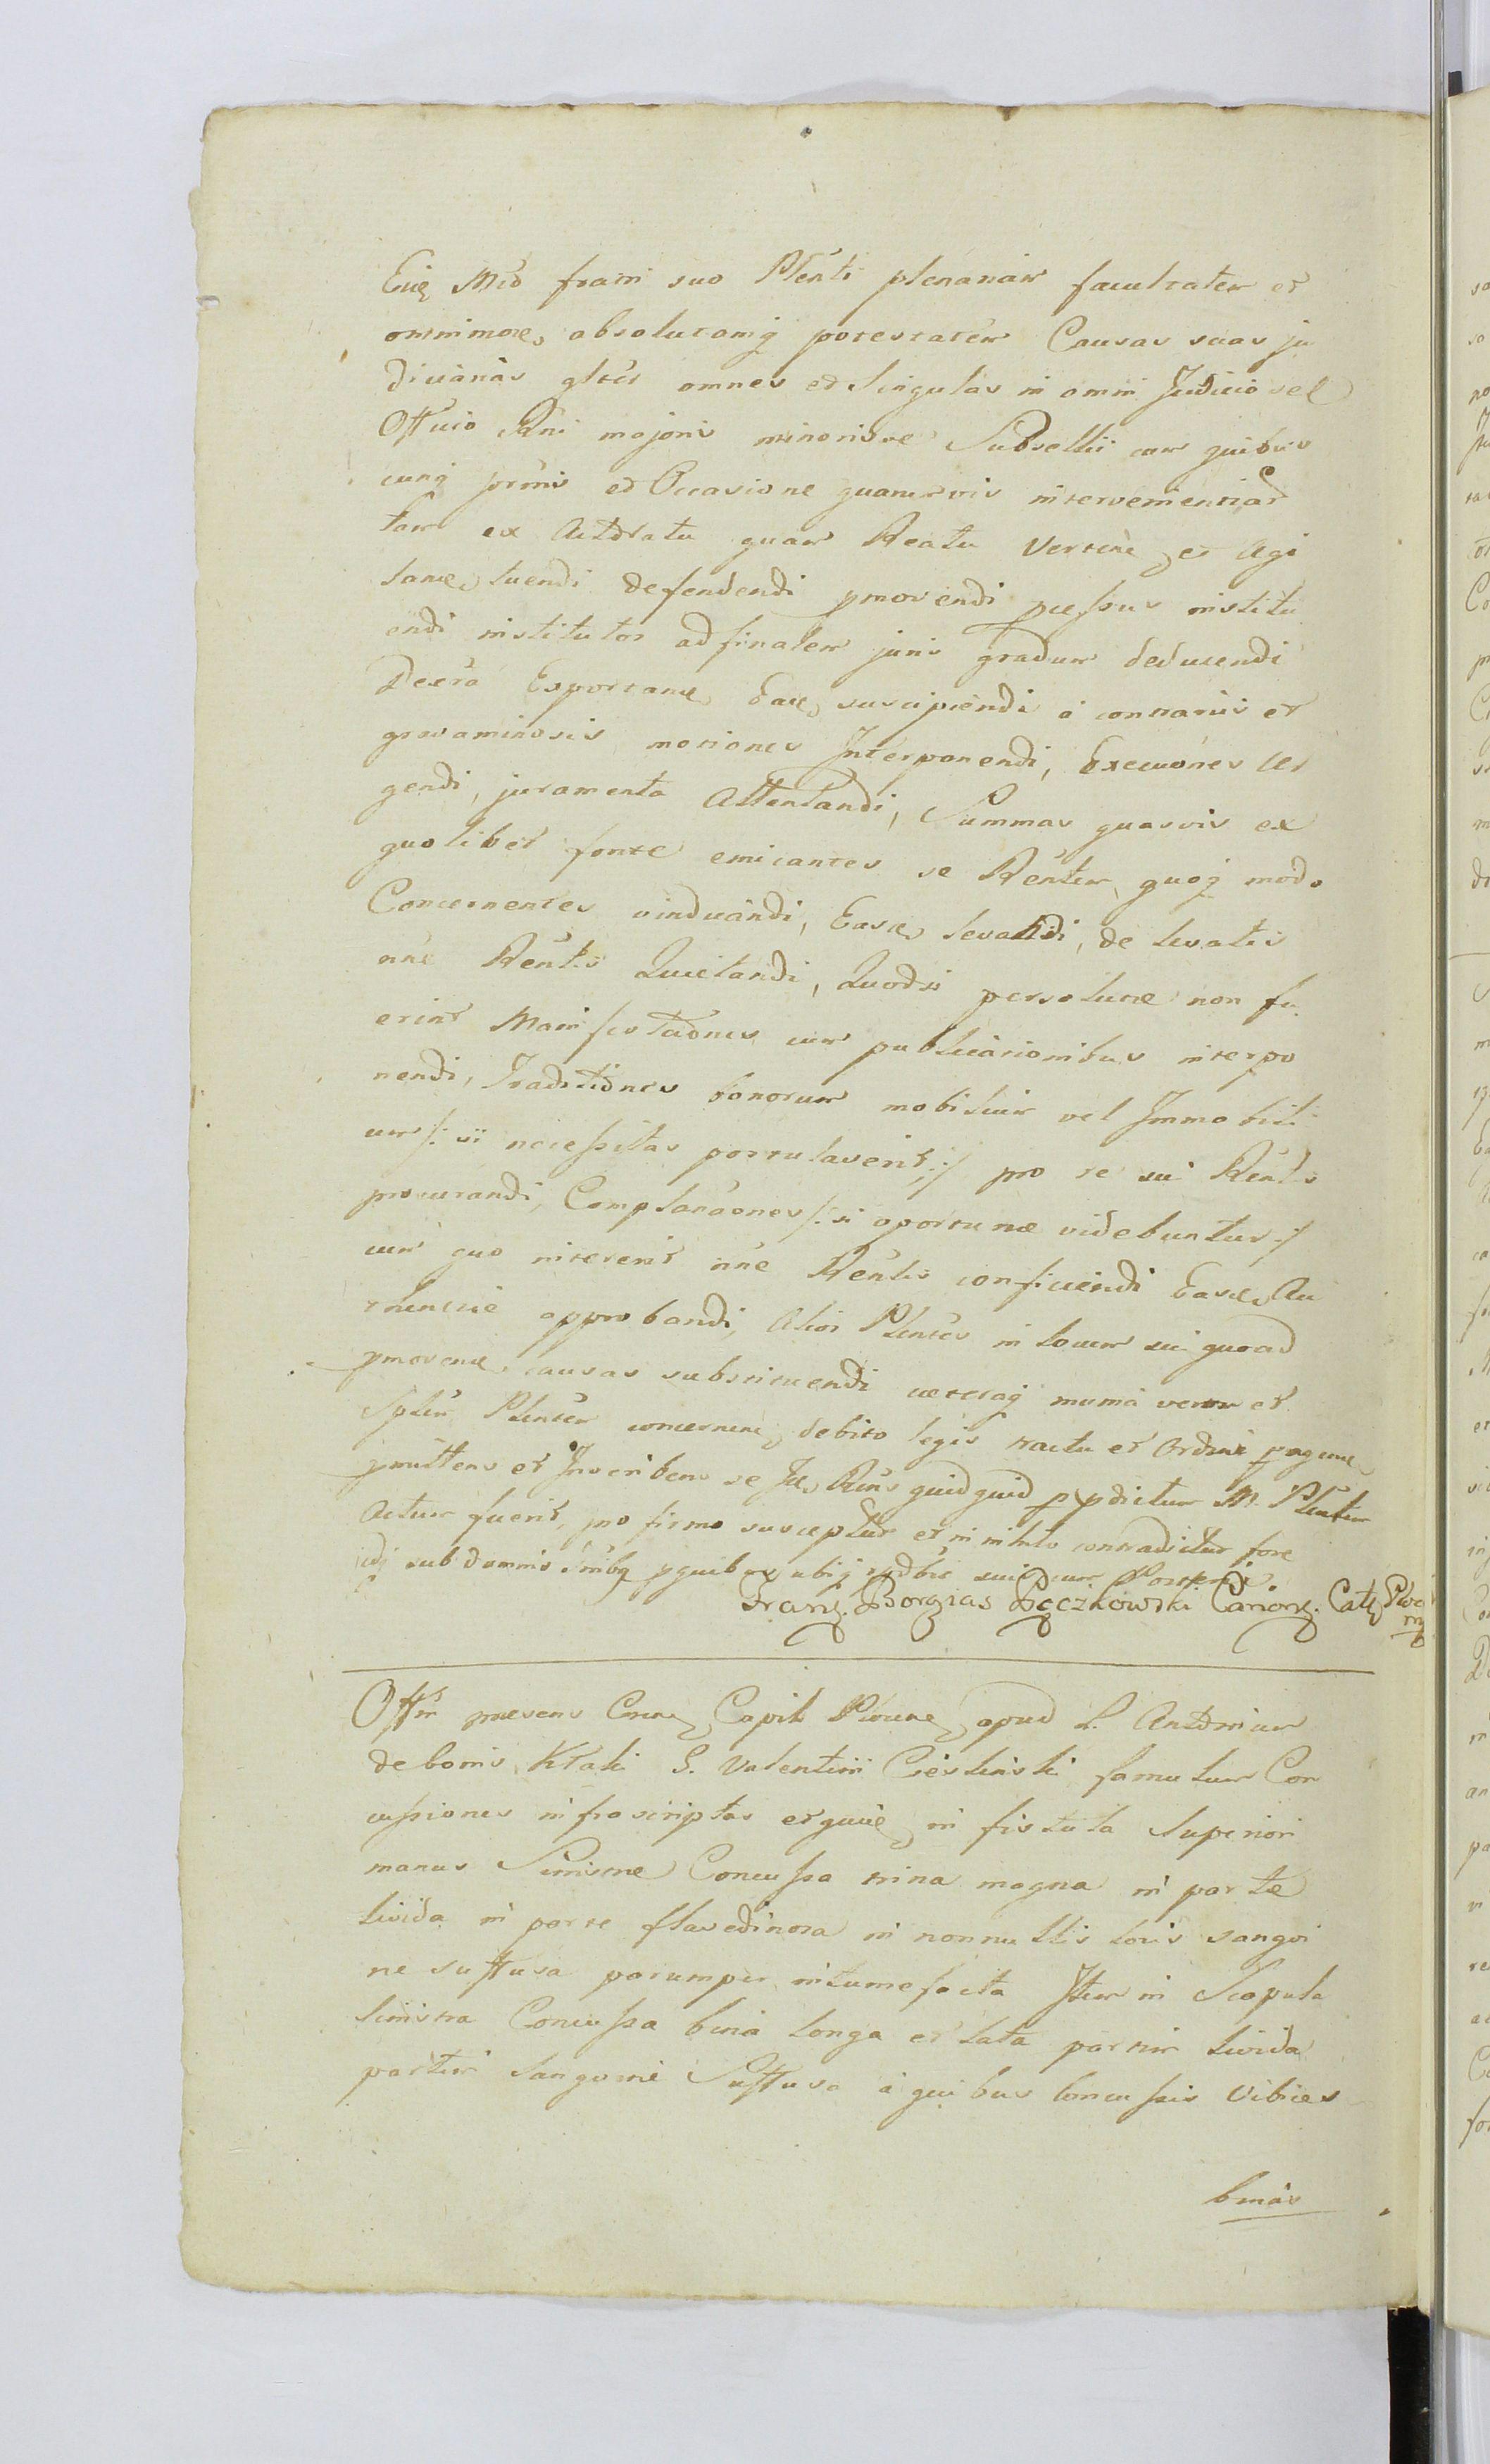 Eidq Mfco fratri suo Plenti plenariam facultatem et
omnimodq absolutamq potestatem Causas suas ju
diciarias gltes omnes et Singulas in omni Judicio vel
Officio Rgni majoris minorisve Subsellii cum quibus
cunq psonis et Occasione quamvis intervenientia
tam ex Actoratu quam Reatu Verten et Agi
tan tuendi defendendi pmovendi pcessus institu
endi institutos ad finalem juris gradum deducendi
Decra Exportan Ea suscipiendi a contrariis et
gravaminosis motiones Interponendi, Execuones Ur
gendi, juramenta Attentandi, Summas quasvis ex
quolibet fonte emicantes se Rentem quoq modo
Concernentes vindicandi, Easq levandi, de levatis
nne Rentis Quietandi, Quodsi persolutae non fu
erint Manifestaones cum publicationibus interpo
nendi, Traditiones bonorum mobilium vel Immobili
um /: si necessitas postulaverit :/ pro re sui Rentis
procurandi, Complanaones /: si oportunae videbuntur :/
cum quo intererit nne Rentis conficiendi Easq Au
thentice approbandi, Alios Plentes in locum sui quoad
pmoven causas substituendi caeteraq munia verum et
Splem Plentem concernen debito legis tractu et Ordine pagen
pmittens et Inscribens se Idq Rens quidquid p pdictum M. Plentem
Actum fuerit, pro firmo suscepturum et in nihilo contradicturum fore
idq sub damnis
Franq. Borgias Pęczkowski Canonq. Cath Ploc
mp
Offm praesens Capit Plocen apud L. Antonium
de bonis Ktaki G. Valentini Cieslinski famulum Con
cussiones infrascriptas et quidem in fistula Superiori
manus Sinistrae Concussa trina magna in parte
livida in parte flavedinosa in nonnullis locis sangvi
ne suffusa parumper intumefacta Item in Scapula
sinistra Concussa bina longa et lata partim livida
partim Sangvine Suffusa a quibus Concussis Vibices
binas